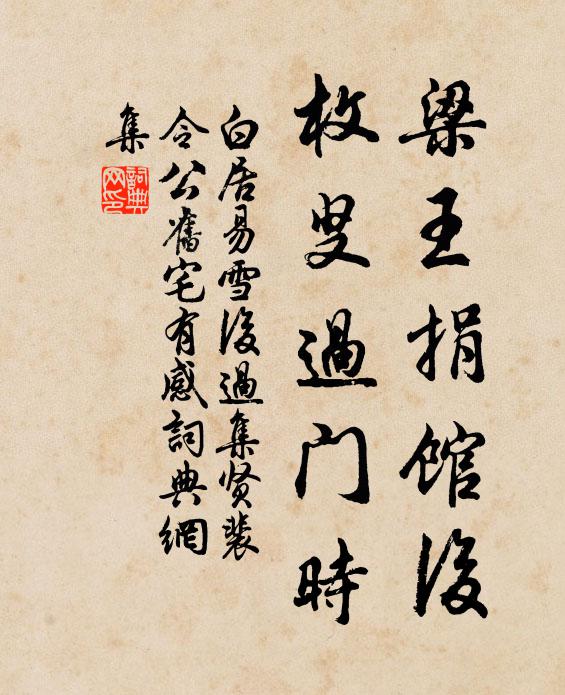 梁王捐馆後
枚叟過门時
白居易雪後過集贤裴
令公舊宅有感詞典網
集
詞典
网印